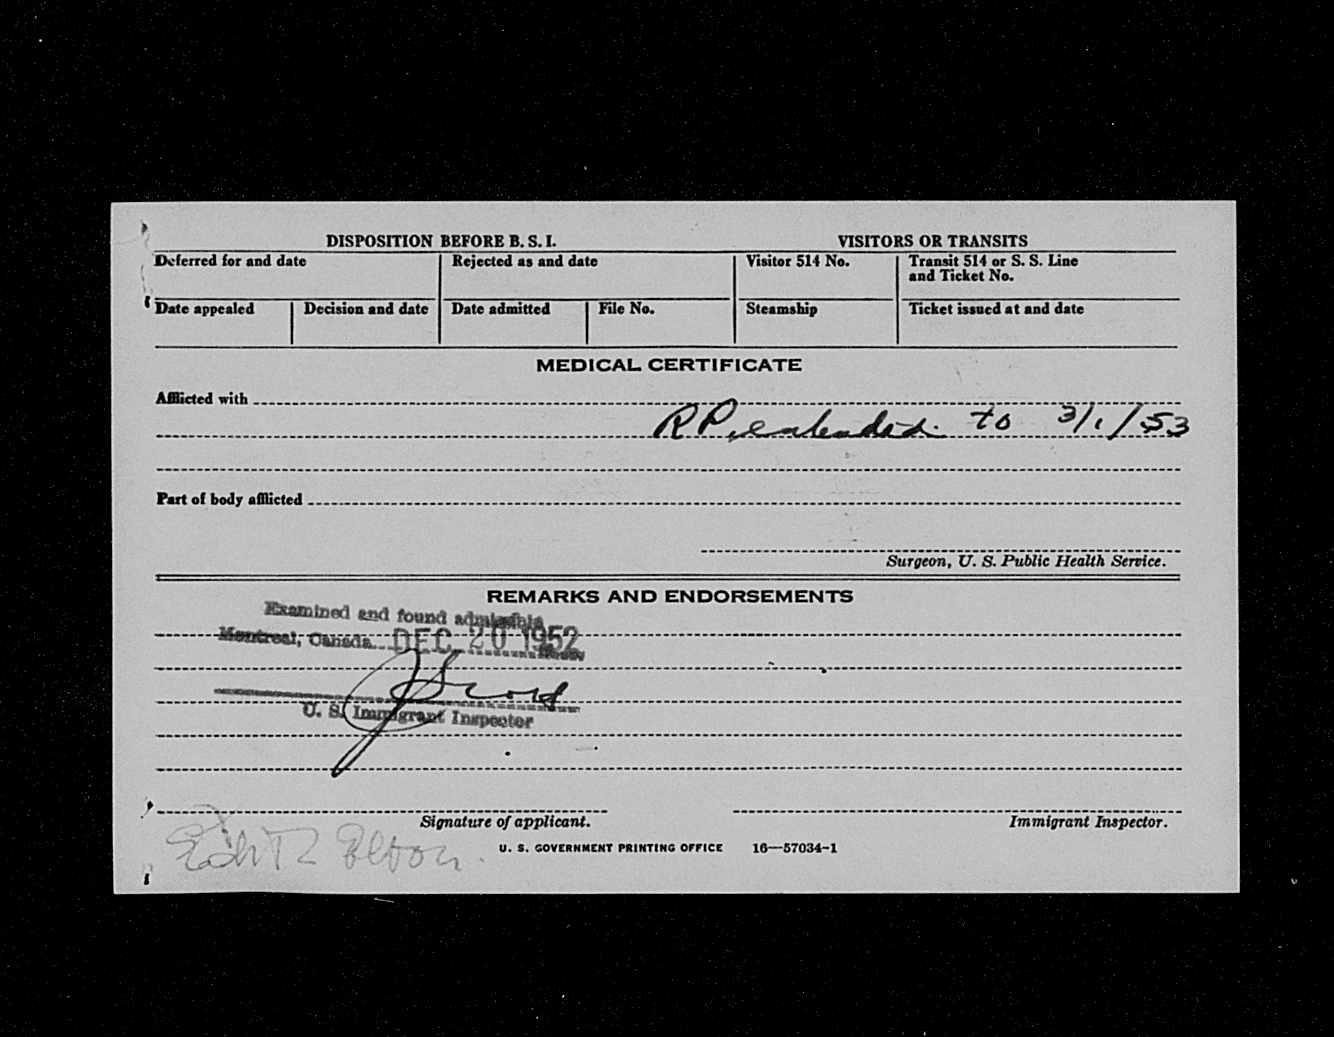 DISPOSITION BEFORE B. S. I. VISITORS OR TRANSITS
Deferred for and date Rejected as and date Visitor 514 No. Transit 514 or S. S. Line
and Ticket No.
Date appealed Decision and date Date admitted File No. Steamship Ticket issued at and date
MEDICAL CERTIFICATE
Afflicted with
RP extended to 3/1/53
Part of body afflicted
Surgeon, U. S. Public Health Service.
REMARKS AND ENDORSEMENTS
Examined and found admissible
Montreal, Canada DEC 20 1952
U. S. Immigrant Inspector
Signature of applicant. Immigrant Inspector.
U. S. GOVERNMENT PRINTING OFFICE 16—57034-1